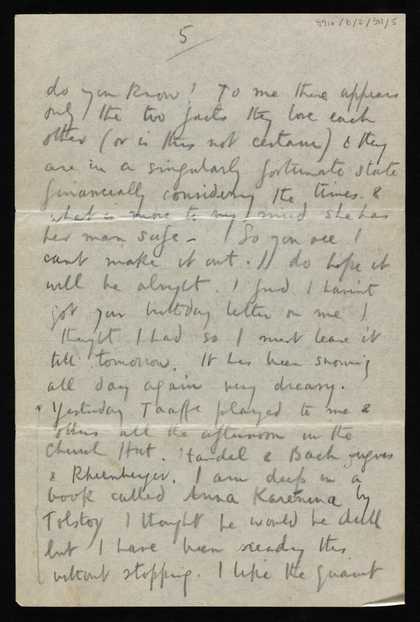 5
do you know! To me there appears
only the two facts they love each
other (or is this not certain) & they
are in a singularly fortunate state
financially considering the times. &
what is more to my mind she has
her man safe – So you see I
cant make it out. I do hope it
will be alright. I find I havent
got your birthday letter on me I
thought I had so I must leave it
till tomorrow. It has been snowing
all day again very dreary.
Yesterday Taaffe played to me &
others all the afternoon in the
Church Hut. Handel & Bach fugues
& Rheinberger. I am deep in a
book called Anna Karenina by
Tolstoy I thought he would be dull
but I have been reading this
without stopping. I like the quaint